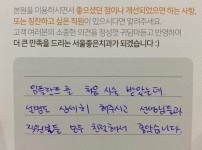 본원을 이용하시면서 좋으셨던 점이나 개선되었으면 하는 사항,
또는 칭찬하고 싶은 직원이 있으시다면 알려주세요.
고객 여러분의 소중한 의견을 정성껏 귀담아듣고 반영하여
더 큰 만족을 드리는 서울좋은치과가 되겠습니다 :)
임플란트를 처음 식술 받았는데
설명도 상세히 해주시고 선생님들과
직원분들 모두 친절해서 좋았습니다.